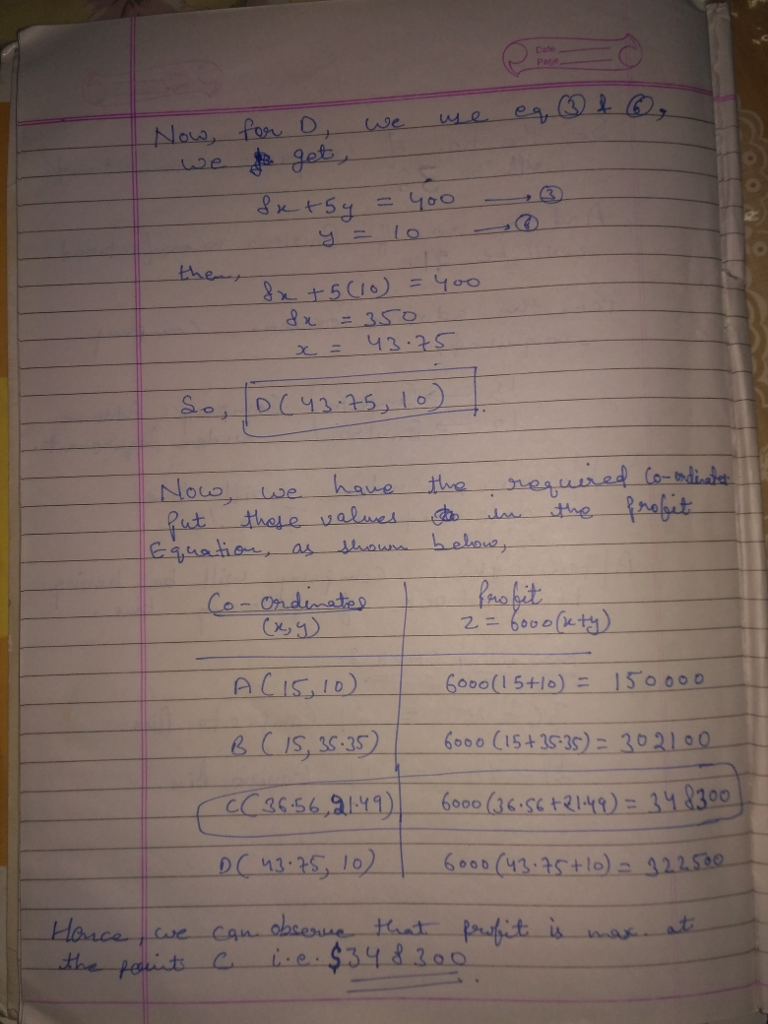 Date
Page
Now, for D, we use eq ③ & ⑥,
we get,
8x + 5y = 400 → ③
y = 10 → ④
then,
8x + 5(10) = 400
8x = 350
x = 43.75
So, D( 43.75, 10)
Now, we have the required Co-ordinates
put these values in the profit
Equation, as shown below,
Co-ordinates Profit
(x, y) Z = 6000(x+y)
A( 15, 10) 6000(15+10) = 150000
B( 15, 35.35) 6000(15+35.35) = 302100
C( 36.56, 21.49) 6000(36.56+21.49) = 348300
D( 43.75, 10) 6000(43.75+10) = 322500
Hence, we can observe that profit is max. at
the points C i.e. $348300